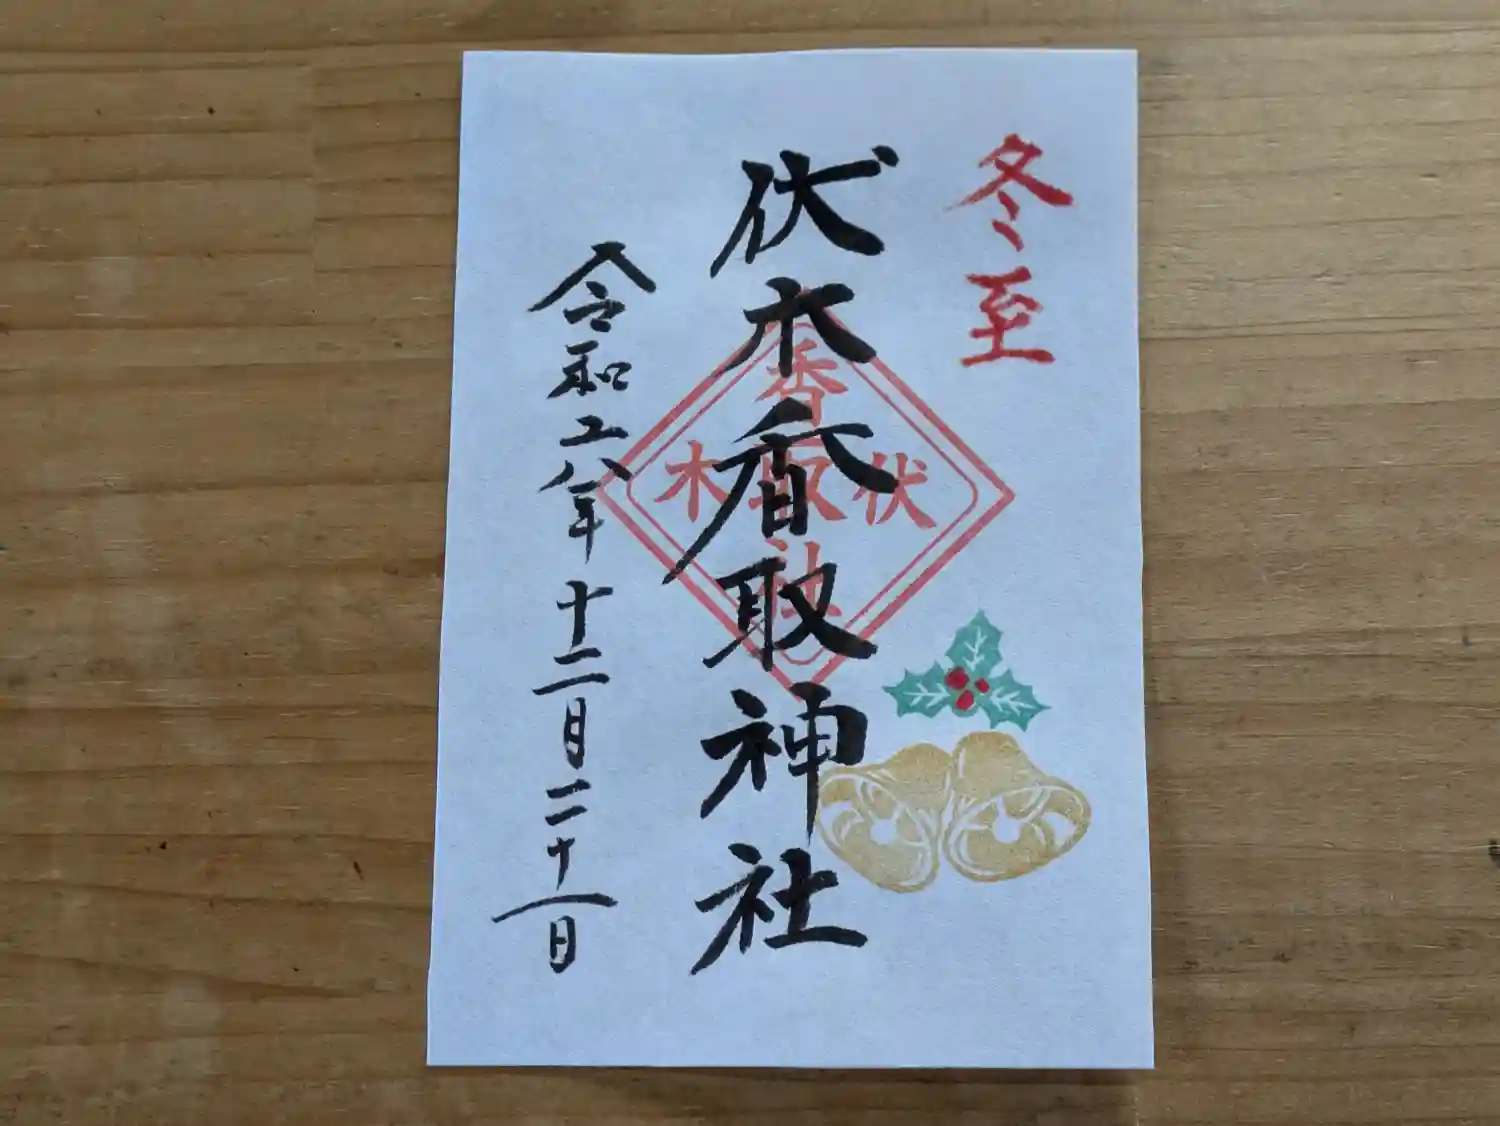 冬至
伏木香取神社
香取社
伏木
令和六年十二月二十一日